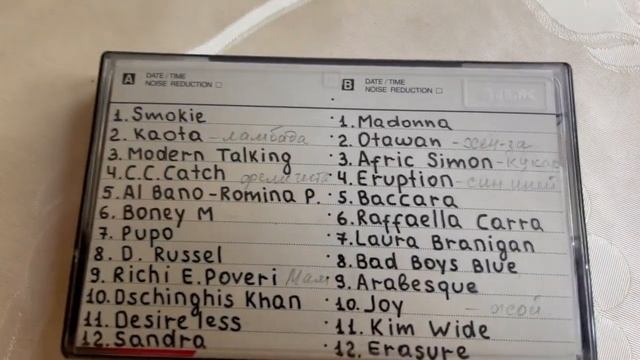 A DATE / TIME
NOISE REDUCTION
1. Smokie
2. Kaota - ламбада
3. Modern Talking
4. C.C. Catch
5. Al Bano - Romina P.
6. Boney M
7. Pupo
8. D. Russel
9. Richi E. Poveri
10. Dschinghis Khan
11. Desireless
12. Sandra
B DATE / TIME
NOISE REDUCTION
1. Madonna
2. Otawan - хен-за
3. Afric Simon - кукла
4. Eruption
5. Baccara
6. Raffaella Carra
7. Laura Branigan
8. Bad Boys Blue
9. Arabesque
10. Joy - жой
11. Kim Wide
12. Erasure